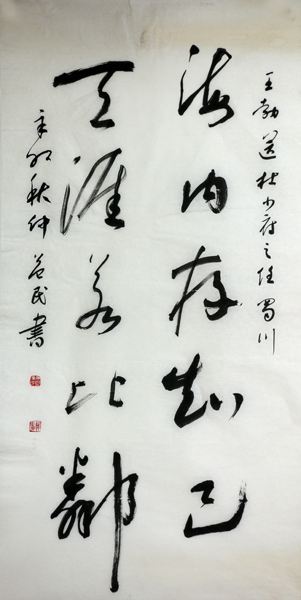 王勃送杜少府之任蜀川
海内存知己
天涯若比鄰
辛卯秋仲 益民書